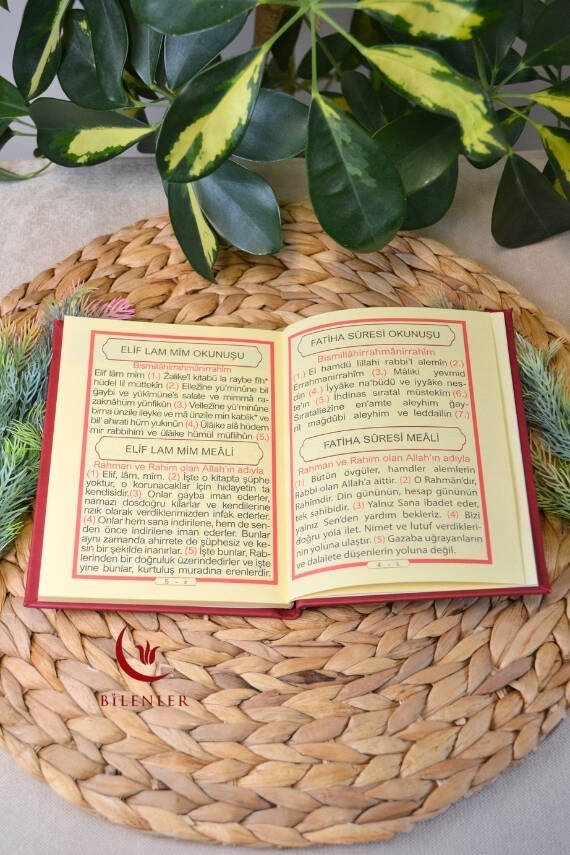 ELİF LAM MİM OKUNUŞU
Bismillâhirrahmânirrahîm
Elif lâm mîm (1.) Żalike'l kitabü la raybe fîh*
hüdel lil müttekîn (2.) Ellezîne yü'minûne bil
ğaybi ve yükîmûne's salate ve mimmâ ra-
zaknâhüm yünfikün (3.) Vellezîne yü'minûne
bima ünzile ileyke ve mâ ünzile min kablik* ve
bil' ahırati hüm yukınün (4.) Ülâike alâ hüdem
mir rabbihim ve ülâike hümül müflihün (5.)
ELİF LAM MİM MEÂLİ
Rahman ve Rahim olan Allah'ın adıyla
(1) Elif, lâm, mîm. (2) İşte o kitapta şüphe
yoktur, o korunacaklar için hidayetin ta
kendisidir.(3) Onlar gayba iman ederler,
namazı dosdoğru kılarlar ve kendilerine
rızık olarak verdiklerimizden infak ederler.
(4) Onlar hem sana indirilene, hem de sen-
den önce indirilene iman ederler. Bunlar
aynı zamanda ahirete de şüphesiz ve ke-
sin bir şekilde inanırlar. (5) İşte bunlar, Rab-
lerinden bir doğruluk üzerindedirler ve işte
yine bunlar, kurtuluş muradına erenlerdir.
5 - ٥
FATİHA SÛRESİ OKUNUŞU
Bismillâhirrahmânirrahîm
(1.) El hamdü lillahi rabbi'l alemin (2.)
Errahmanirrahîm (3.) Mâliki yevmid
din (4.) İyyâke na'büdü ve iyyâke nes-
ta'în (5.) İhdinas sıratal müstekîm (6.)
Sıratallezîne en'amte aleyhim ğay-
ril mağdûbi aleyhim ve leddallin (7.)
FATİHA SÛRESİ MEÂLİ
Rahman ve Rahim olan Allah'ın adıyla
(1) Bütün övgüler, hamdler alemlerin
Rabbi olan Allah'a aittir. (2) O Rahmân'dır,
Rahîmdir. Din gününün, hesap gününün
tek sahibidir. (3) Yalnız Sana ibadet eder,
yalnız Sen'den yardım bekleriz. (4) Bizi
doğru yola ilet. Nimet ve lutuf verdikleri-
nin yoluna ulaştır. (5) Gazaba uğrayanların
ve dalalete düşenlerin yoluna değil.
4 - ٤
BİLENLER